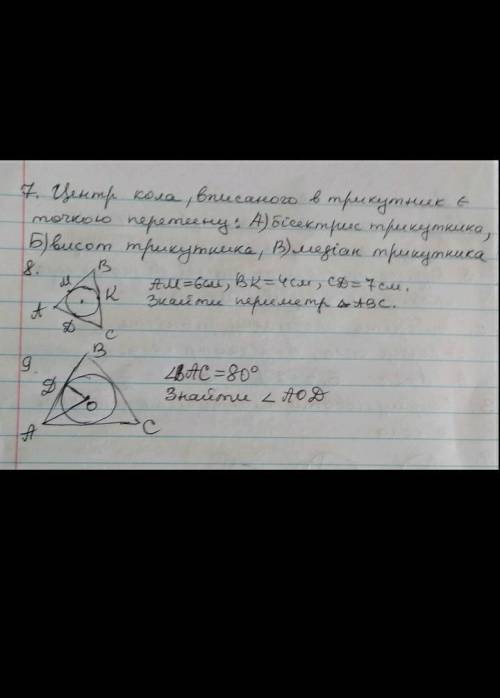 7. Центр кола, вписаного в трикутник є
точкою перетину: А) бісектрис трикутника,
Б) висот трикутника, В) медіан трикутника
8.
B
M
K
A
D
C
AM=6см, BK=4см, CD=7см.
Знайти периметр △ABC.
9.
B
D
O
A
C
∠BAC=80°
Знайти ∠AOD